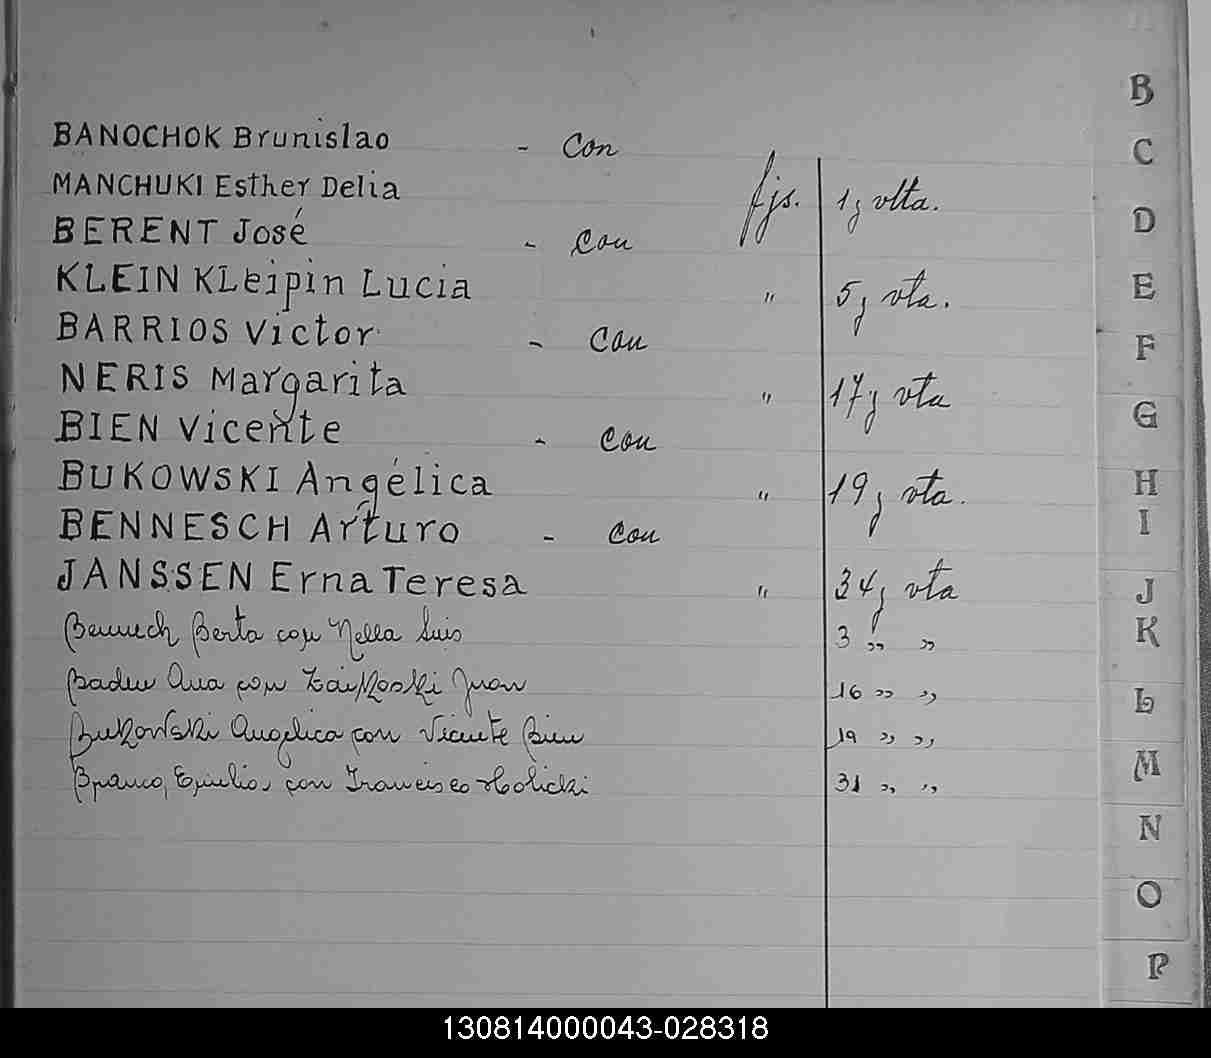 BANOCHOK Brunislao - Con
MANCHUKI Esther Delia fjs. 1 y vlta.
BERENT José - Con
KLEIN KLeipin Lucia " 5 y vta.
BARRIOS Victor - Con
NERIS Margarita " 17 y vta
BIEN Vicente - Con
BUKOWSKI Angélica " 19 y vta.
BENNESCH Arturo - Con
JANSSEN Erna Teresa " 34 y vta
Bennech Berta con Nella Luis 3 " "
Ana con Juan 16 " "
Bukowski Angelica con Vicente Bien 19 " "
Emilio, con Francisco Holicki 31 " "
B
C
D
E
F
G
H
I
J
K
L
M
N
O
P
130814000043-028318